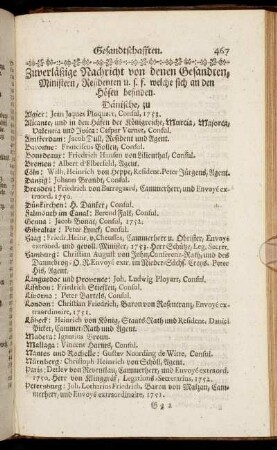 Gesandtschafften. 467
Zuverläßige Nachricht von denen Gesandten,
Ministern, Residenten u. s. f. welche sich an den
Höfen befinden.
Dänische, zu
Algier: Jean Jaques Plaquer, Consul, 1753.
Alicante, und in den Hafen der Königreiche, Murcia, Majorca,
Valencia und Ivica: Caspar Varnet, Consul.
Amsterdam: Jacob Dull, Resident und Agent.
Bayonne: Franciscus Consul.
Bourdeaux: Friedrich Hansen von Lilienthal, Consul.
Bremen: Albert d'Elberfeld, Agent.
Cöln: Wilh. Heinrich von Resident. Peter Jürgens, Agent.
Danzig: Johann Brandt, Consul.
Dresden: Friedrich von Cammerherr, und Envoyé ex-
traord. 1750.
Dünkirchen: H. Danket, Consul.
Falmouth im Canal: Berend Falk, Consul.
Genua: Jacob Bonat, Consul, 1752.
Gibraltar: Peter Consul.
Haag: Friedr. Heinr. v. Cheusses, Cammerherr u. Obrister, Envoyé
extraord. und gevoll. Minister, 1753. Herr Schultze, Leg. Secret.
Hamburg: Christian August von John, Conferenz-Rath, und des
Dannebrog-O. R. Envoyé extr. im Nieder-Sächs. Creis. Peter
His, Agent.
Languedoc und Provence: Joh. Ludwig Ployart, Consul.
Lisabon: Friedrich Consul.
Livorno: Peter Consul.
London: Christian Friedrich, Baron von Rosencranz, Envoyé ex-
traordinaire, 1751.
Lübeck: Heinrich von König, Staats-Rath und Resident. Daniel
Cammer-Rath und Agent.
Madera: Ignatius
Mallaga: Vincent Consul.
Nantes und Rochelle: Gustav Noording de Witte, Consul.
Nürnberg: Christoph Heinrich von Agent.
Paris: Detlev von Reventlau, Cammerherr, und Envoyé extraord.
1750. Herr von Klinggräf, Legations-Secretarius, 1752.
Petersburg: Joh. Lotharius Friedrich, Baron von Malzan, Cam-
merherr, und Envoyé extraordinaire, 1751.
G g 2